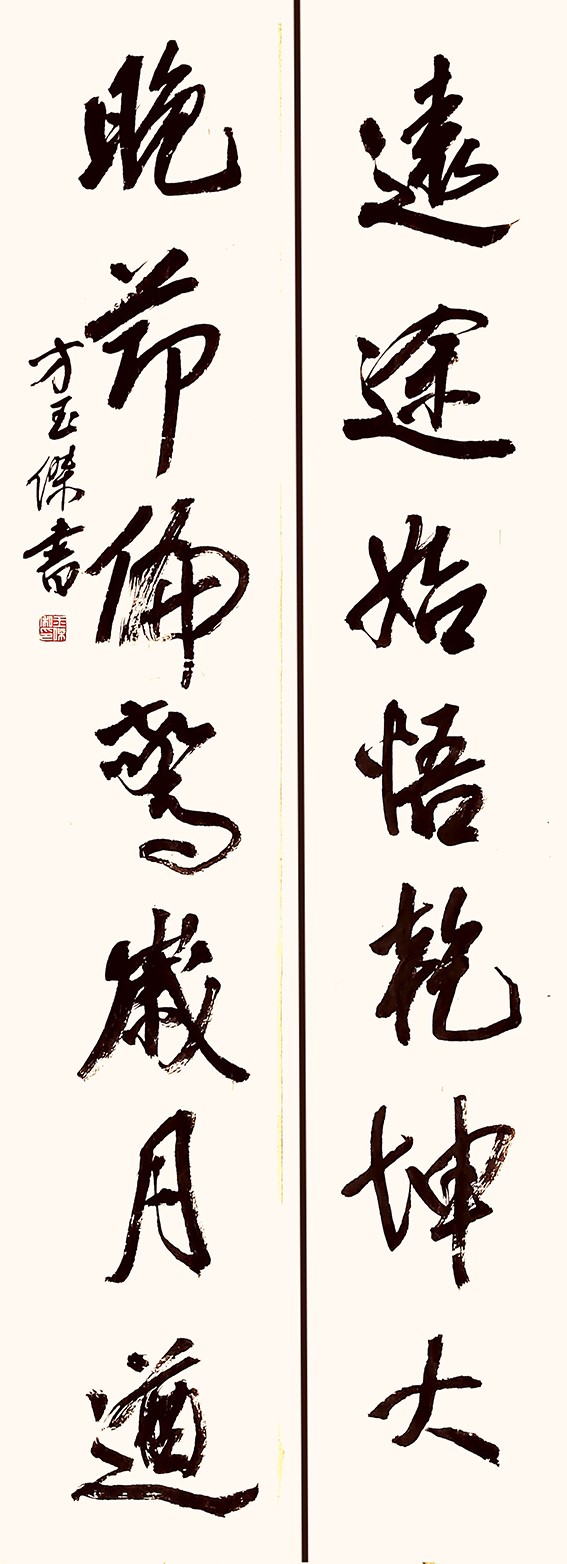 遠途始悟乾坤大
晚節偏驚歲月遒
方玉傑書